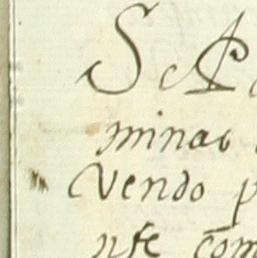 S A
minas
Vendo p
nte com